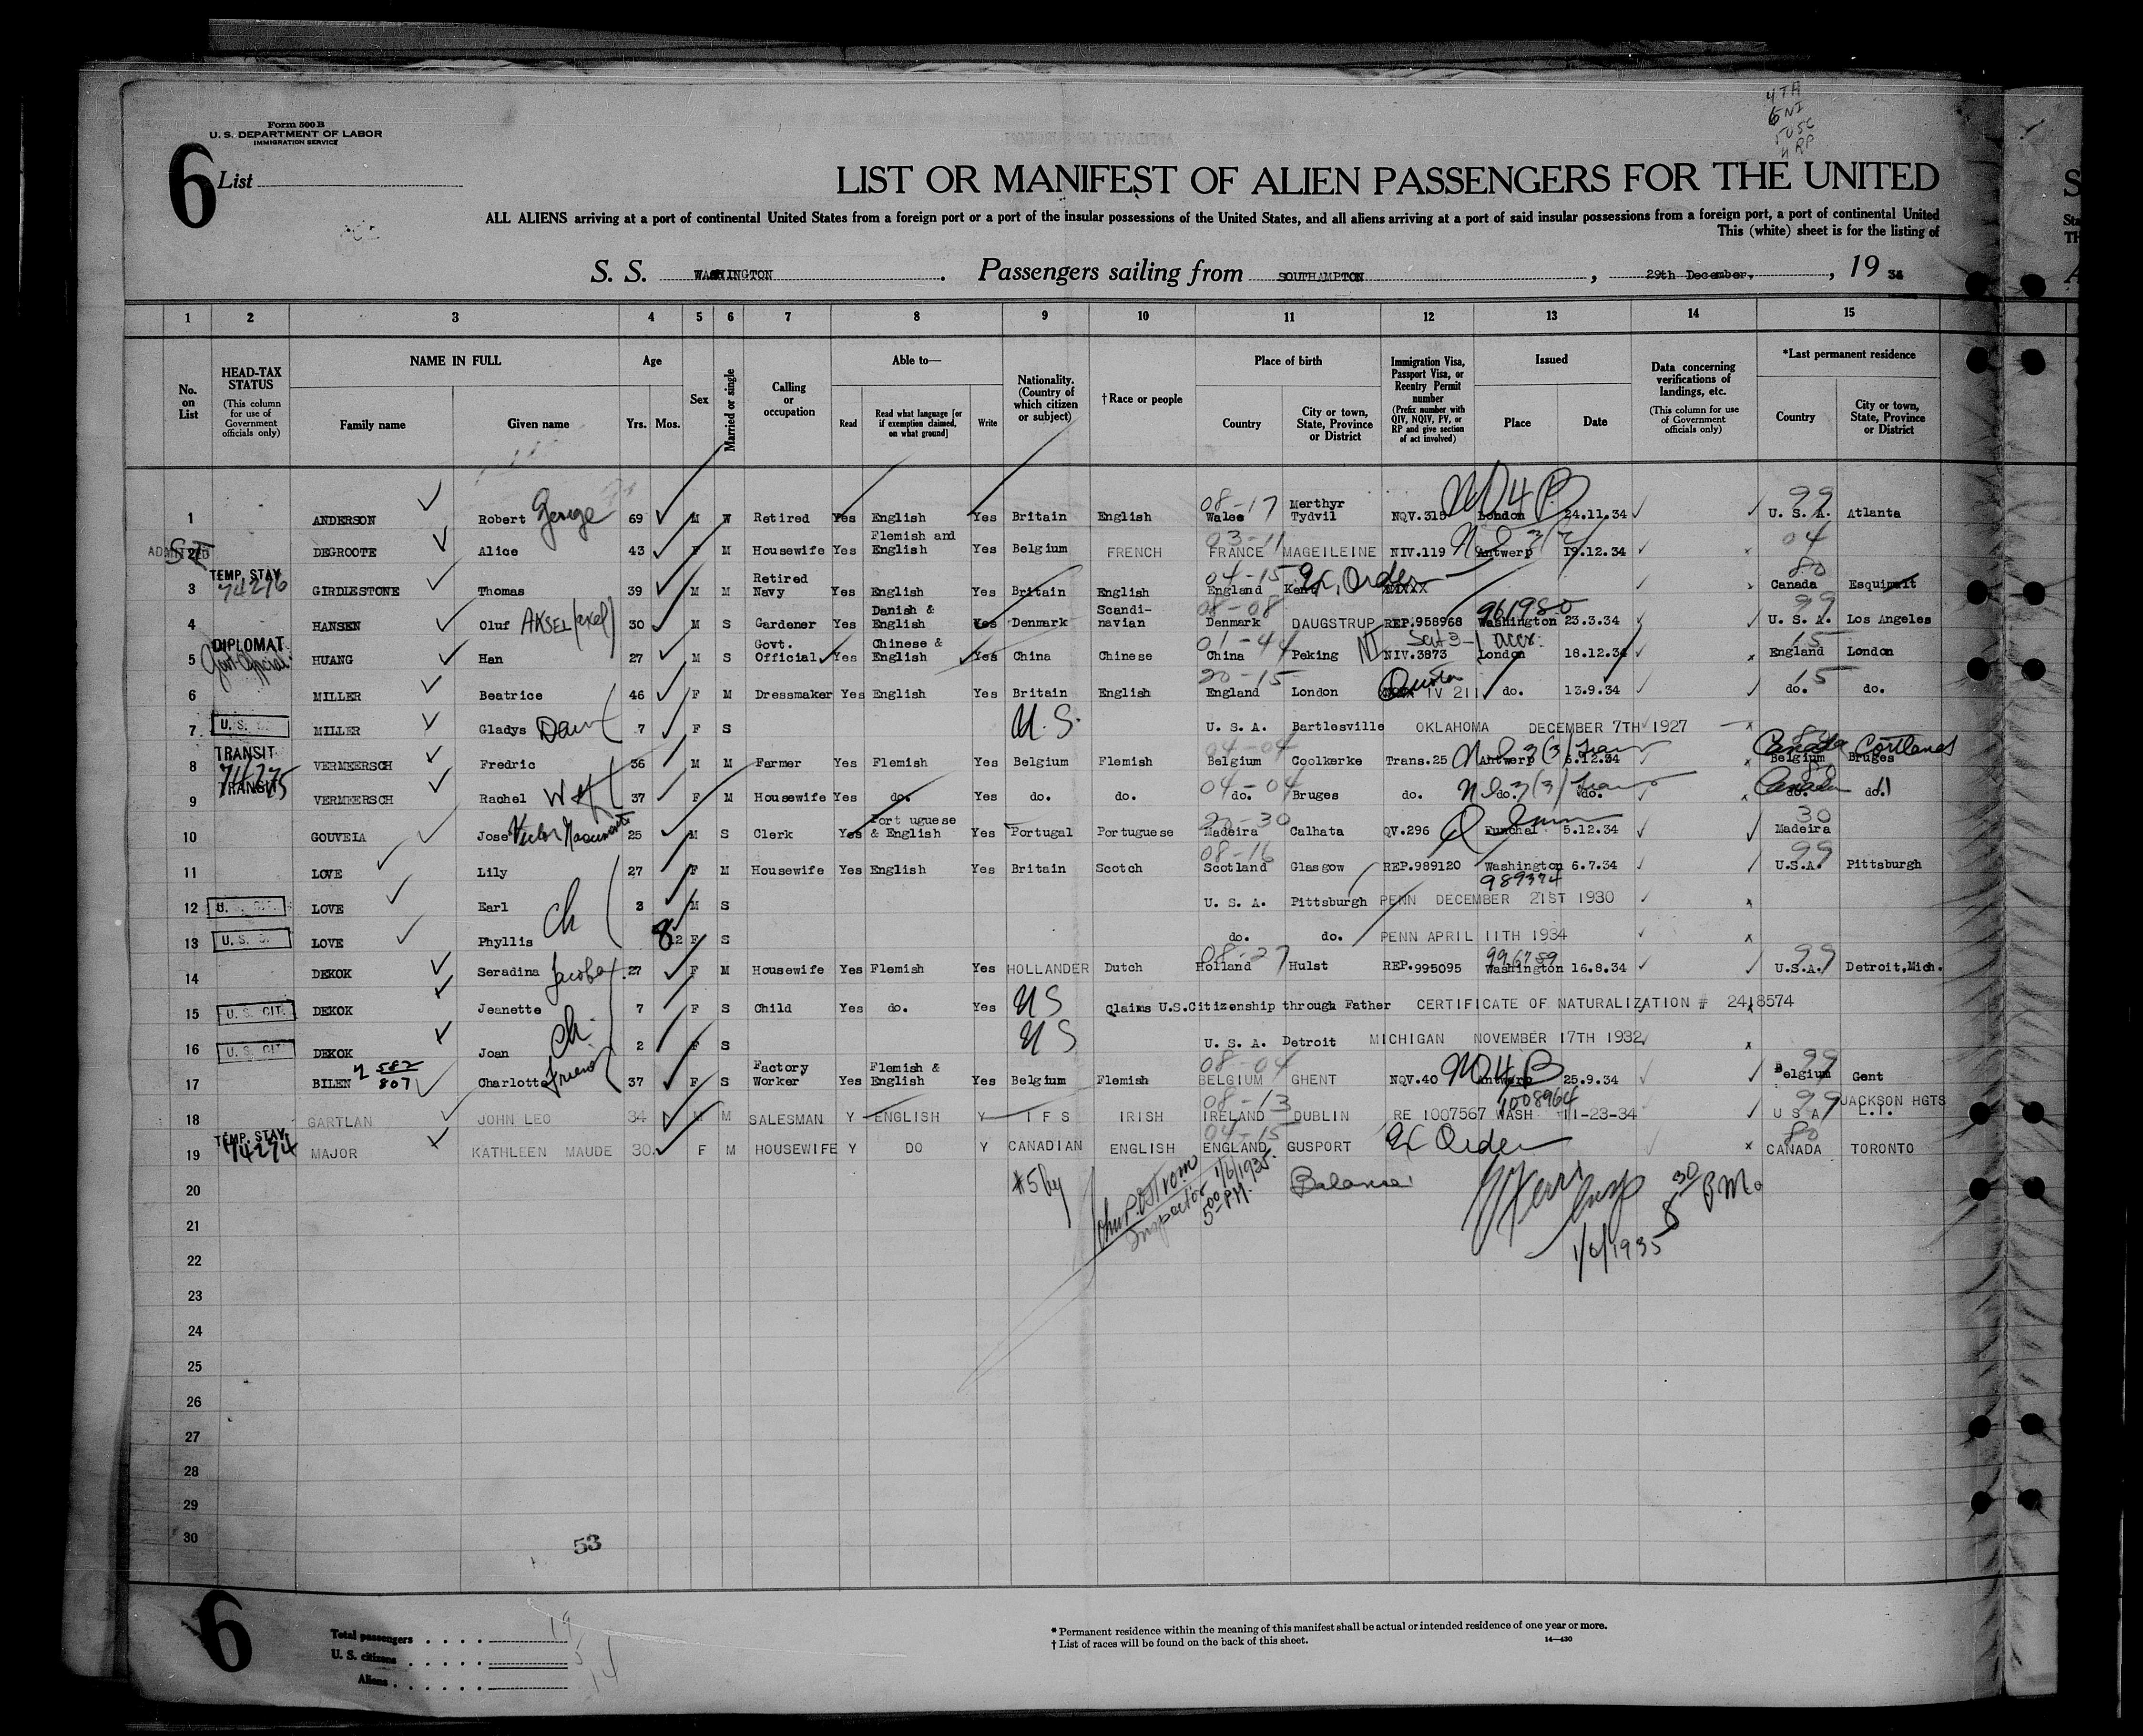 4 TA
6 NI
5 USC
4 RP
Form 500 B
U. S. DEPARTMENT OF LABOR
IMMIGRATION SERVICE
6 List
LIST OR MANIFEST OF ALIEN PASSENGERS FOR THE UNITED
ALL ALIENS arriving at a port of continental United States from a foreign port or a port of the insular possessions of the United States, and all aliens arriving at a port of said insular possessions from a foreign port, a port of continental United
This (white) sheet is for the listing of
S. S. WASHINGTON . Passengers sailing from SOUTHAMPTON , 29th December. , 19 34
1 2 3 4 5 6 7 8 9 10 11 12 13 14 15
No. on List
HEAD-TAX STATUS (This column for use of Government officials only)
NAME IN FULL Family name Given name
Age Yrs. Mos.
Sex
Married or single
Calling or occupation
Able to— Read Read what language [or if exemption claimed, on what ground] Write
Nationality. (Country of which citizen or subject)
† Race or people
Place of birth Country City or town, State, Province or District
Immigration Visa, Passport Visa, or Reentry Permit number (Prefix number with QIV, NQIV, PV, or RP and give section of act involved)
Issued Place Date
Data concerning verifications of landings, etc. (This column for use of Government officials only)
*Last permanent residence Country City or town, State, Province or District
1 ANDERSON Robert George 69 M W Retired Yes English Yes Britain English 08-17 Wales Merthyr Tydvil NQV.315 London 24.11.34 99 U. S. A. Atlanta
ADMITTED 2 DEGROOTE Alice 43 F M Housewife Yes Flemish and English Yes Belgium FRENCH 03-11 FRANCE MAGEILEINE NIV.119 Antwerp 19.12.34 04
TEMP. STAY 74276 3 GIRDLESTONE Thomas 39 M M Retired Navy Yes English Yes Britain English 04-15 England Kent Ex. Order XXXXX 80 Canada Esquimalt
4 HANSEN Oluf AKSEL (axel) 30 M S Gardener Yes Danish & English Yes Denmark Scandinavian 08-08 Denmark DAUGSTRUP REP.958968 961980 Washington 23.3.34 99 U. S. A. Los Angeles
DIPLOMAT Govt Official 5 HUANG Han 27 M S Govt. Official Yes Chinese & English Yes China Chinese 01-44 China Peking NI NIV.3873 Sect 3-1 accr. London 18.12.34 15 England London
6 MILLER Beatrice 46 F M Dressmaker Yes English Yes Britain English 20-15 England London Quota IV 211 do. 13.9.34 15 do. do.
7 U. S. MILLER Gladys Daur 7 F S U.S. U. S. A. Bartlesville OKLAHOMA DECEMBER 7TH 1927
TRANSIT 8 VERMEERSCH Fredric 36 M M Farmer Yes Flemish Yes Belgium Flemish 04-04 Belgium Coolkerke Trans.25 Antwerp 3(3) Tran 5.12.34 Canada Cortland Belgium Bruges
74275 TRANSIT 9 VERMEERSCH Rachel Wf 37 F M Housewife Yes do. Yes do. do. 04-04 do. Bruges do. do. 3(3) Tran do. Canada do. do.
10 GOUVEIA Jose Victor 25 M S Clerk Yes Portuguese & English Yes Portugal Portuguese 20-30 Madeira Calhata QV.296 Funchal 5.12.34 30 Madeira
11 LOVE Lily 27 F M Housewife Yes English Yes Britain Scotch 08-16 Scotland Glasgow REP.989120 Washington 6.7.34 989374 99 U.S.A. Pittsburgh
12 LOVE Earl Ch 3 M S U. S. A. Pittsburgh PENN DECEMBER 21ST 1930
13 U. S. LOVE Phyllis 8 12 F S do. do. PENN APRIL 11TH 1934
14 DEKOK Seradina Jacoba 27 F M Housewife Yes Flemish Yes HOLLANDER Dutch 08-27 Holland Hulst REP.995095 996759 Washington 16.8.34 99 U.S.A. Detroit,Mich.
15 U. S. CIT. DEKOK Jeanette 7 F S Child Yes do. Yes US Claims U.S.Citizenship through Father CERTIFICATE OF NATURALIZATION # 2418574
16 U. S. CIT. DEKOK Joan Ch. 2 F S US U. S. A. Detroit MICHIGAN NOVEMBER 17TH 1932
17 BILEN 2 582 807 Charlotte Friend 37 F S Factory Worker Yes Flemish & English Yes Belgium Flemish 08-04 BELGIUM GHENT NQV.40 Antwerp 25.9.34 99 Belgium Gent
18 GARTLAN JOHN LEO 34 M M SALESMAN Y ENGLISH Y I F S IRISH 08-13 IRELAND DUBLIN RE 1007567 1008964 WASH 11-23-34 99 U S A JACKSON HGTS L.I.
TEMP. STAY 74274 19 MAJOR KATHLEEN MAUDE 30 F M HOUSEWIFE Y DO Y CANADIAN ENGLISH 04-15 ENGLAND GUSPORT Ex Order 80 CANADA TORONTO
20 #5 by John P. Ostrom Inspector 1/6/1935 5:00 P.M. Balance Insp 8 30 P.M.
21
22 1/6/1935
23
24
25
26
27
28
29
30
53
6
Total passengers . . . . 19
U. S. citizens . . . . . 5
Aliens . . . . . . 14
* Permanent residence within the meaning of this manifest shall be actual or intended residence of one year or more.
† List of races will be found on the back of this sheet. 14—430